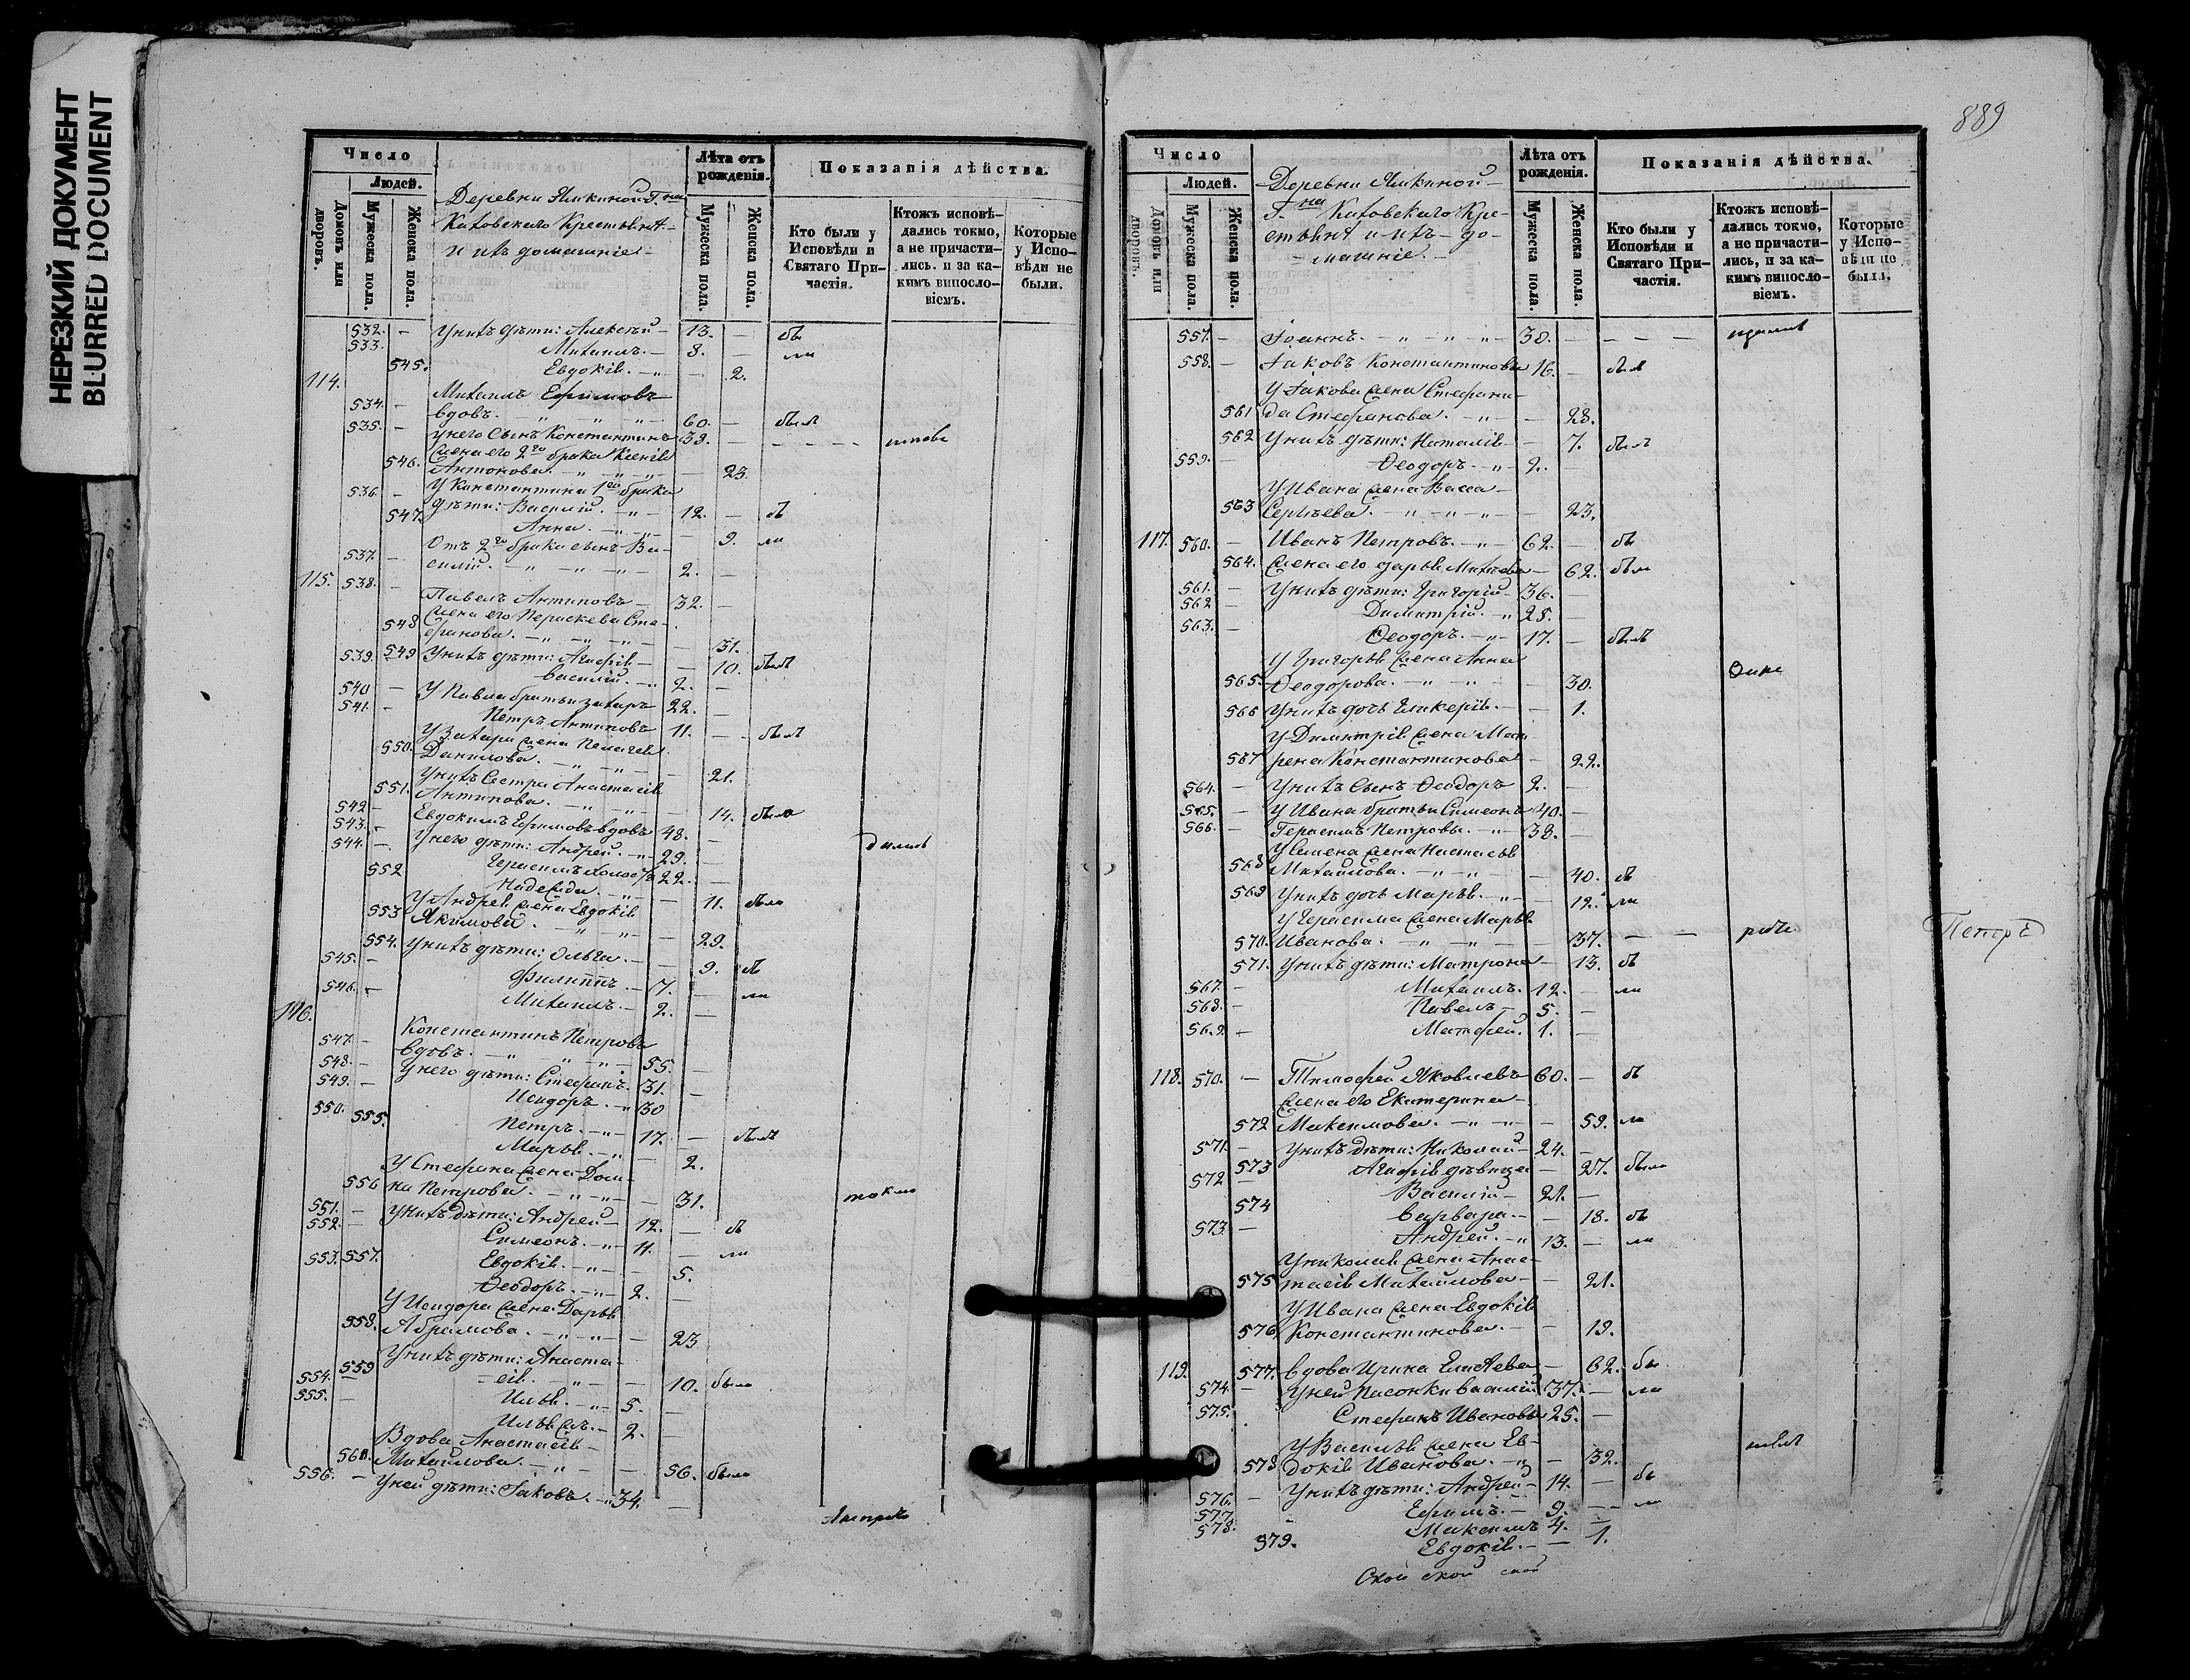 НЕРЕЗКИЙ ДОКУМЕНТ
BLURRED DOCUMENT
Число
Людей.
Домовъ или дворовъ.
Мужеска пола.
Женска пола.
Деревни
Крестьяне
и ихъ домашніе
Лѣта отъ рожденія.
Мужеска пола.
Женска пола.
Показанія дѣйства.
Кто были у Исповѣди и Святаго Причастія.
Ктожъ исповѣдались токмо, а не причастились. и за какимъ винословіемъ.
Которые у Исповѣди не были.
532. – У нихъ дѣти: Алексѣй – 13. – бы
533. Михаилъ. – 8. – ли
545. Евдокія. – „ – 2.
114.
534. – Михаилъ Ефимовъ
вдовъ. – „ „ „ – 60. – былъ
535. – У него сынъ Константинъ 38. –
546. Жена его 2го брака Ксенія
Антонова. – „ – „ – „ – 23.
536. – У Константина 1го брака
дѣти: Василій. – „ – 12. – бы
547. Анна. – „ – „ – 9. ли
537. – Отъ 2го брака сынъ Ва-
силій. – „ – „ – „ – 2. –
115. 538. – Павелъ Антиповъ – 32. –
548 Жена его Параскева Сте-
фанова. – „ – „ – „ – 31.
549 У нихъ дѣти: Агафія – – 10. была
539. Василій. – „ 2. –
540 – У Павла братья Захаръ 22. –
541. – Петръ Антиповы 11. – былъ
550. У Захара жена Пелагея
Данилова. – „ – „ – 21.
551. У нихъ сестра Анастасія
Антипова. – „ – „ – 14. была
542 – Евдокимъ Ефимовъ вдовъ 48. –
543. – У него дѣти: Андрей. – „ 29. –
544. – Герасимъ холостъ 22. –
552 Надежда. – „ – 11. была
553 У Андрея жена Евдокія
Якимова. – „ – „ – 29.
554. У нихъ дѣти: Ольга. – – 9. бы
545. – Филиппъ. – 7. – ли
546. – Михаилъ. – 2. –
116.
547. – Константинъ Петровъ
вдовъ. – „ „ „ – 55. –
548. – У него дѣти: Стефанъ. 31. –
549. – Исидоръ. – „ 30
550. Петръ. – „ – 17. – былъ
555. Марья. – „ – 2.
556 У Стефана жена Дом-
на Петрова. – „ – „ – 31. токмо
551. – У нихъ дѣти: Андрей – 12. – бы
552. – Симеонъ. – „ – 11. – ли
557. Евдокія. – „ – 5.
553. Ѳеодоръ. – „ – 2. –
558. У Исидора жена Дарья
Абрамова. – „ – „ – 23
559 У нихъ дѣти: Анаста-
сія. – „ – – 10. была
554. – Илья. – „ – 5. –
555. – Илья – 2. –
560. Вдова Анастасія
Михайлова. – „ – – 56. была
556. – У ней дѣти: Іаковъ. – „ 34. –
889
Число
Людей.
Домовъ или дворовъ.
Мужеска пола.
Женска пола.
Деревни
Кре-
стьяне и ихъ до-
машніе. –
Лѣта отъ рожденія.
Мужеска пола.
Женска пола.
Показанія дѣйства.
Кто были у Исповѣди и Святаго Причастія.
Ктожъ исповѣдались токмо, а не причастились, и за какимъ винословіемъ.
Которые у Исповѣди не были.
557. – Іоаннъ. – „ – „ – „ – 30. – – – –
558. – Іаковъ Константиновы 16. – былъ
561 У Іакова жена Стефани-
да Стефанова. – „ – – 28.
562 У нихъ дѣти: Наталія – 7. была
559. – Ѳеодоръ – „ – 2. –
563 У Ивана жена Васса –
Сергѣева. – „ – „ – „ – 23.
117. 560. – Иванъ Петровъ. – „ – 62. – бы
564. Жена его Дарья Матѳѣева – 62. были
561. – У нихъ дѣти: Григорій – 36. –
562 – Димитрій. – „ 25. –
563. – Ѳеодоръ. – „ – 17. – былъ
565. У Григорья жена Анна
Ѳеодорова. – „ – „ – 30.
566 У нихъ дочь Гликерія. – – 1.
567 У Димитрія жена Мат-
рена Константинова – 22.
564. – У нихъ сынъ Ѳеодоръ 2. –
565. – У Ивана братья Симеонъ 40. –
566. – Герасимъ Петровы. – „ 38. –
568 У Семена жена Настасья
Михайлова. – „ – „ – 40. бы
569 У нихъ дочь Марья. – „ – 12. ли
570. У Герасима жена Марья
Иванова. – „ – „ – 37. – –
571. У нихъ дѣти: Матрона – 13. бы
567. – Михаилъ. 12. – ли
568. – Павелъ – 5. –
569. – Матѳей. 1. –
Петръ
118. 570. – Тимоѳей Яковлевъ 60. – бы
572 Жена его Екатерина –
Максимова. – „ – „ – 59. ли
571. – У нихъ дѣти: Николай – 24. –
573 Агафія дѣвица – 27. была
572 – Василій – 21. –
574 Варвара. – – 18. бы
573. – Андрей. – „ 13. – ли
575 У Николая жена Анас-
тасія Михайлова – – 21.
576 У Ивана жена Евдокія
Константинова. – – 19.
119. 577. Вдова Ирина – 62. бы
574. – У ней пасынки Василій 37. – ли
575. Стефанъ Ивановы 25. –
578 У Василья жена Ев-
докія Иванова. – „ – 32.
576. – У нихъ дѣти: Андрей – 14. – бы
577 – Ефимъ. – 9. – ли
578. Максимъ 4. –
579. Евдокія. – – 1.